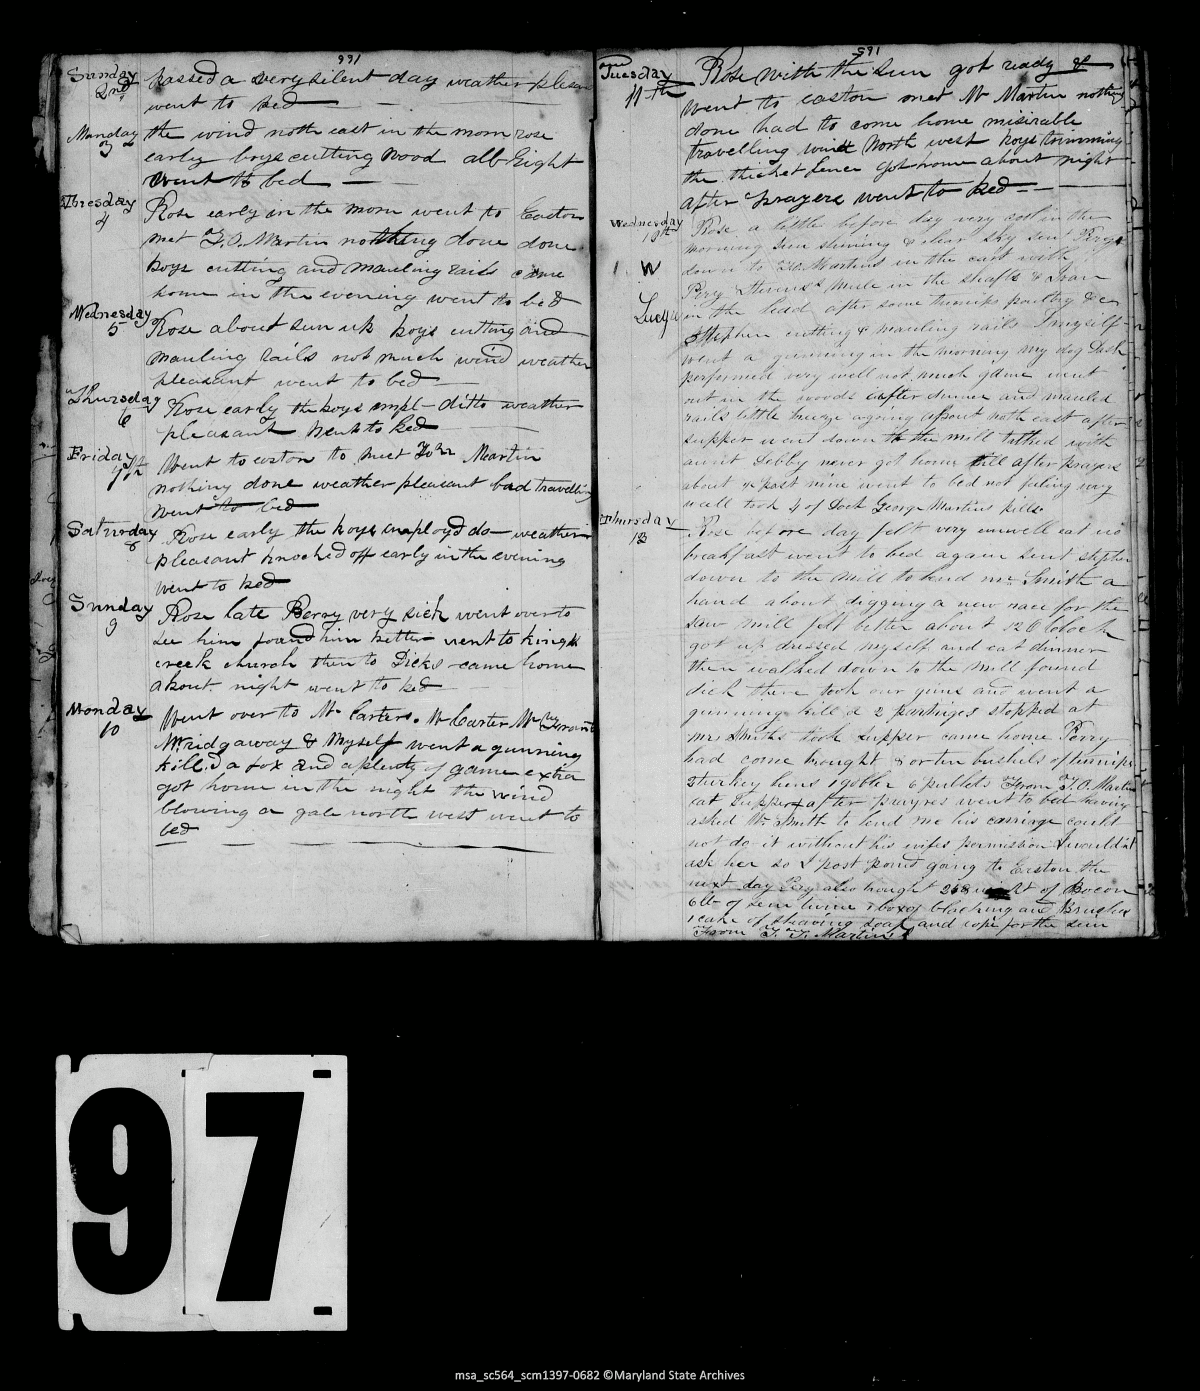 991
Sunday 2nd passed a very silent day weather pleasan
went to bed
Monday 3 the wind noth east in the morn rose
early boys cutting wood all Eight
went to bed
Tuesday 4 Rose early in the morn went to Easton
met T.O. Martin nothing done done
boys cutting and mauling rails came
home in the evening went to bed
Wednesday 5 Rose about sun up boys cutting and
mauling rails not much wind weather
pleasant went to bed
Thursday 6 Rose early the boys impl- ditto weather
pleasant went to bed
Friday 7th Went to easton to meet John Martin
nothing done weather pleasant bad travelling
went to bed
Saturday 8 Rose early the boys imployd do weather
pleasant knocked off early in the evening
went to bed
Sunday 9 Rose late Berry very sick went over to
see him found him better went to kings
creek church then to Dicks came home
about night went to bed
Monday 10 Went over to Mr Carters. Mr Carter Mr
Mr ridgaway & Myself went a gunning
killd a fox and a plenty of game extra
got home in the night the wind
blowing a gale north west went to
bed
591
Tuesday 11th Rose with the sun got ready &
went to easton met Mr Martin nothing
done had to come home misirable
travelling wind North west boys trimming
the thicket fence got home about night
after prayers went to bed
Wednesday Rose a little before day very cool in the
morning sun shining & clear sky sent Perry
down to T.O. Martins in the cart with
1 W
Perry Stevens's Mule in the shafts & Ivan
Lucy in the lead after some turnips poultry & c
Stephen cutting & mauling rails I myself
went a gunning in the morning my dog Dash
performed very well not much game went
out in the woods after dinner and mauled
rails little breeze agoing about noth east after
supper went down to the mill talked with
aunt Debby never got home till after prayers
about ½ past nine went to bed not feling very
well took 4 of Doct George Martins pills
Thursday 13 Rose before day felt very unwell eat no
breakfast went to bed again sent stephen
down to the mill to lend mr Smith a
hand about digging a new race for the
saw mill felt better about 12 O clock
got up dressed myself and eat dinner
then walked down to the mill found
dick there took our guns and went a
gunning kill d 2 partriges stopped at
mr Smiths took supper came home Perry
had come brought 8 or ten bushels of turnips
2 turkey hens 1 gobler 6 pullets From T.O. Martin
eat supper after prayres went to bed having
asked Mr Smith to lend me his carriage could
not do it without his wifes permission I would'nt
ask her so I post pond going to Easton the
next day Pery also brought 268 weight of Bacon
6 lb of sein twine 1 box of blacking and Brushes
1 cake of shaving soap and rope for the sein
From T. O. Martin
97
msa_sc564_scm1397-0682 ©Maryland State Archives